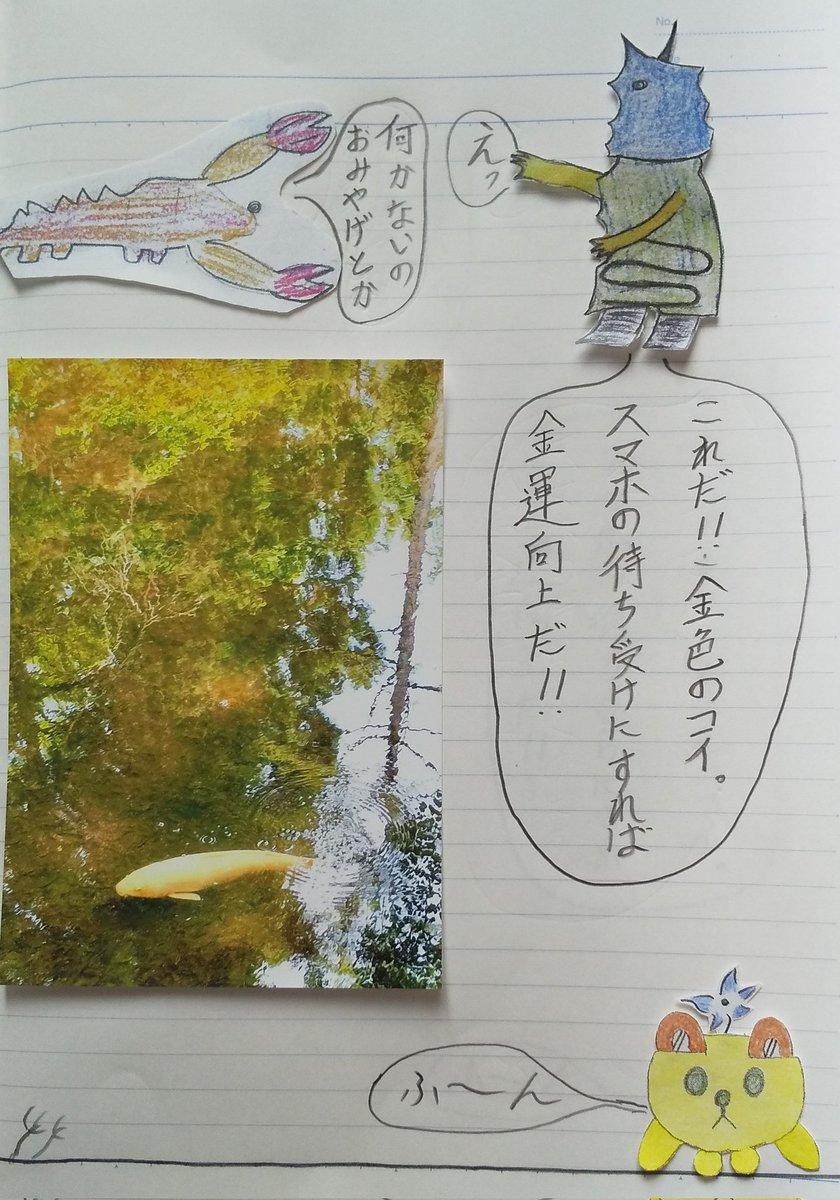 No.
何かないの
おみやげとか
えっ
これだ!!金色のコイ。
スマホの待ち受けにすれば
金運向上だ!!
ふ〜ん